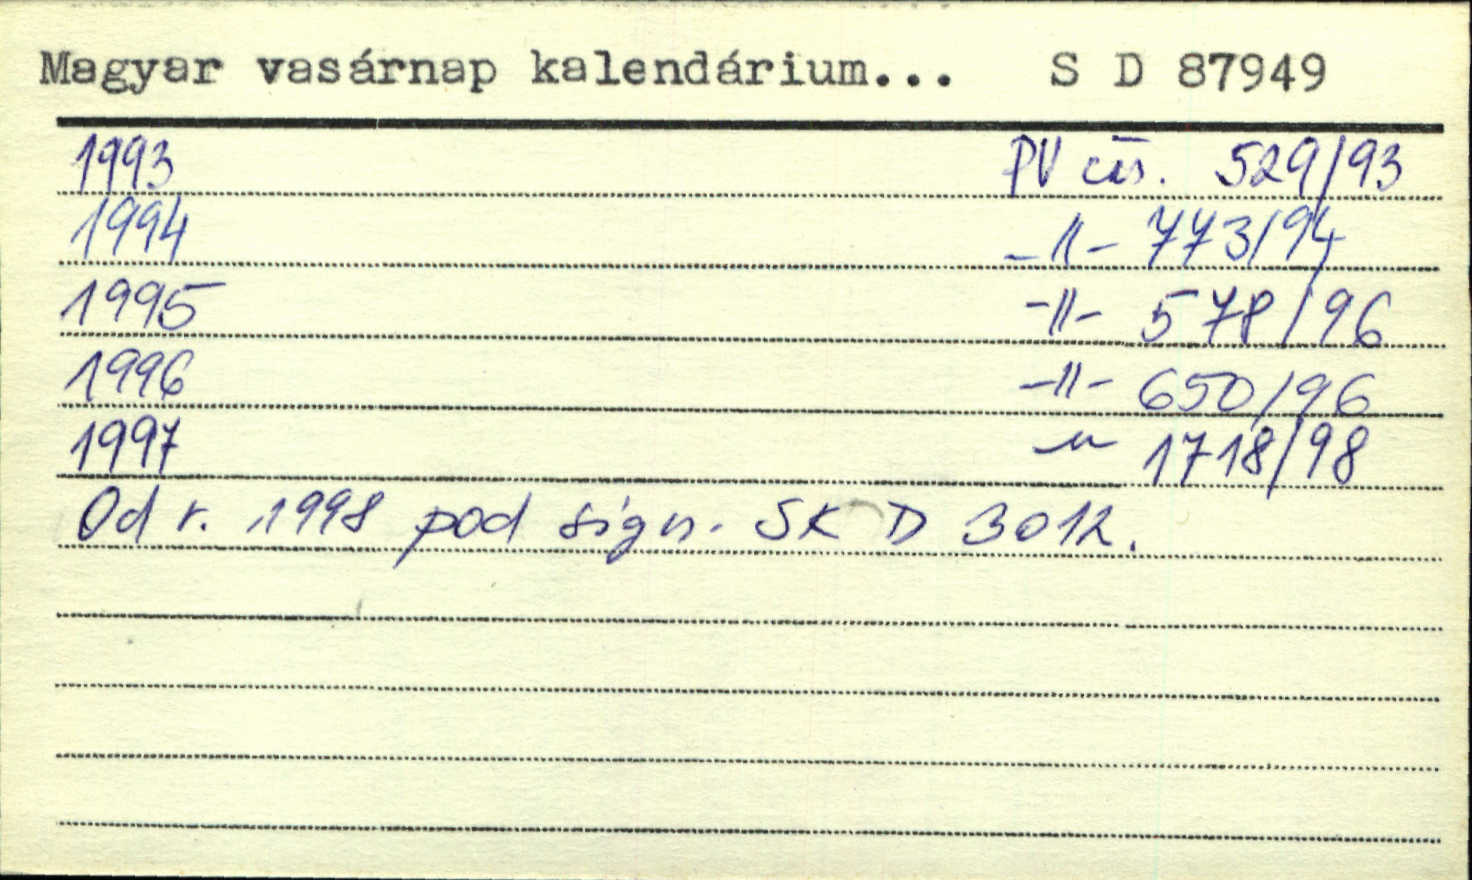 Magyar vasárnap kalendárium... S D 87949
1993 PV čís. 529/93
1994 -"- 773/94
1995 -"- 578/96
1996 -"- 650/96
1997 -"- 1718/98
Od r. 1998 pod sign. SK D 3012.